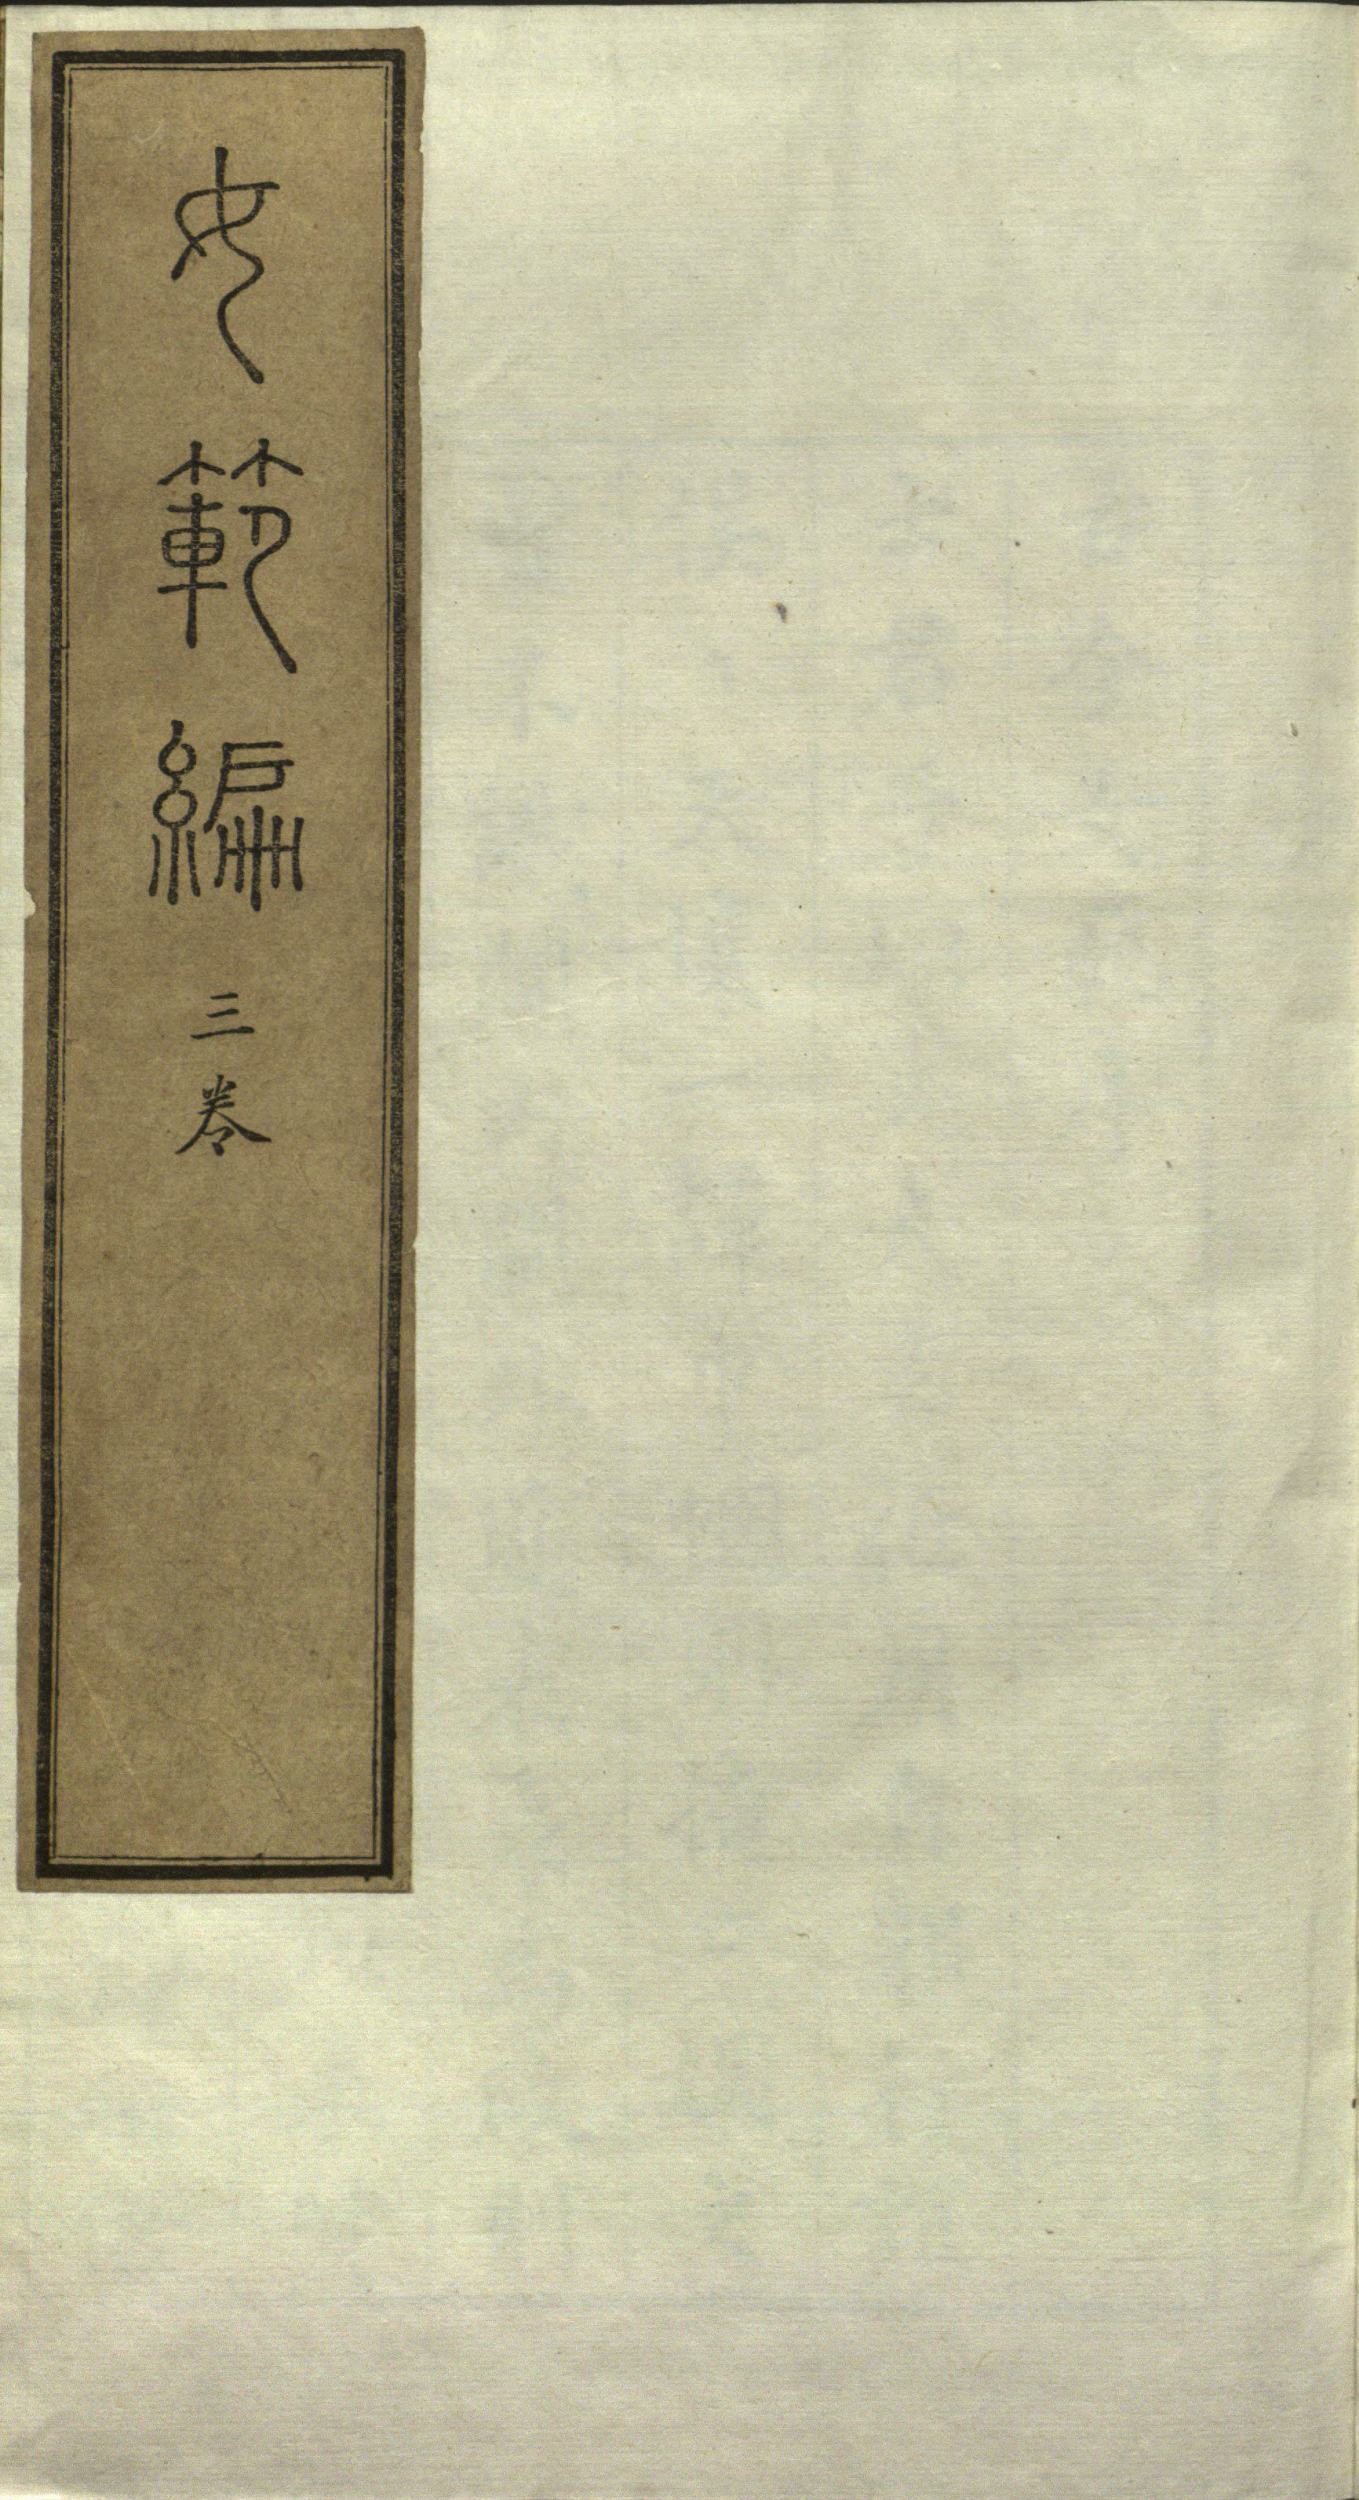 女範編三卷